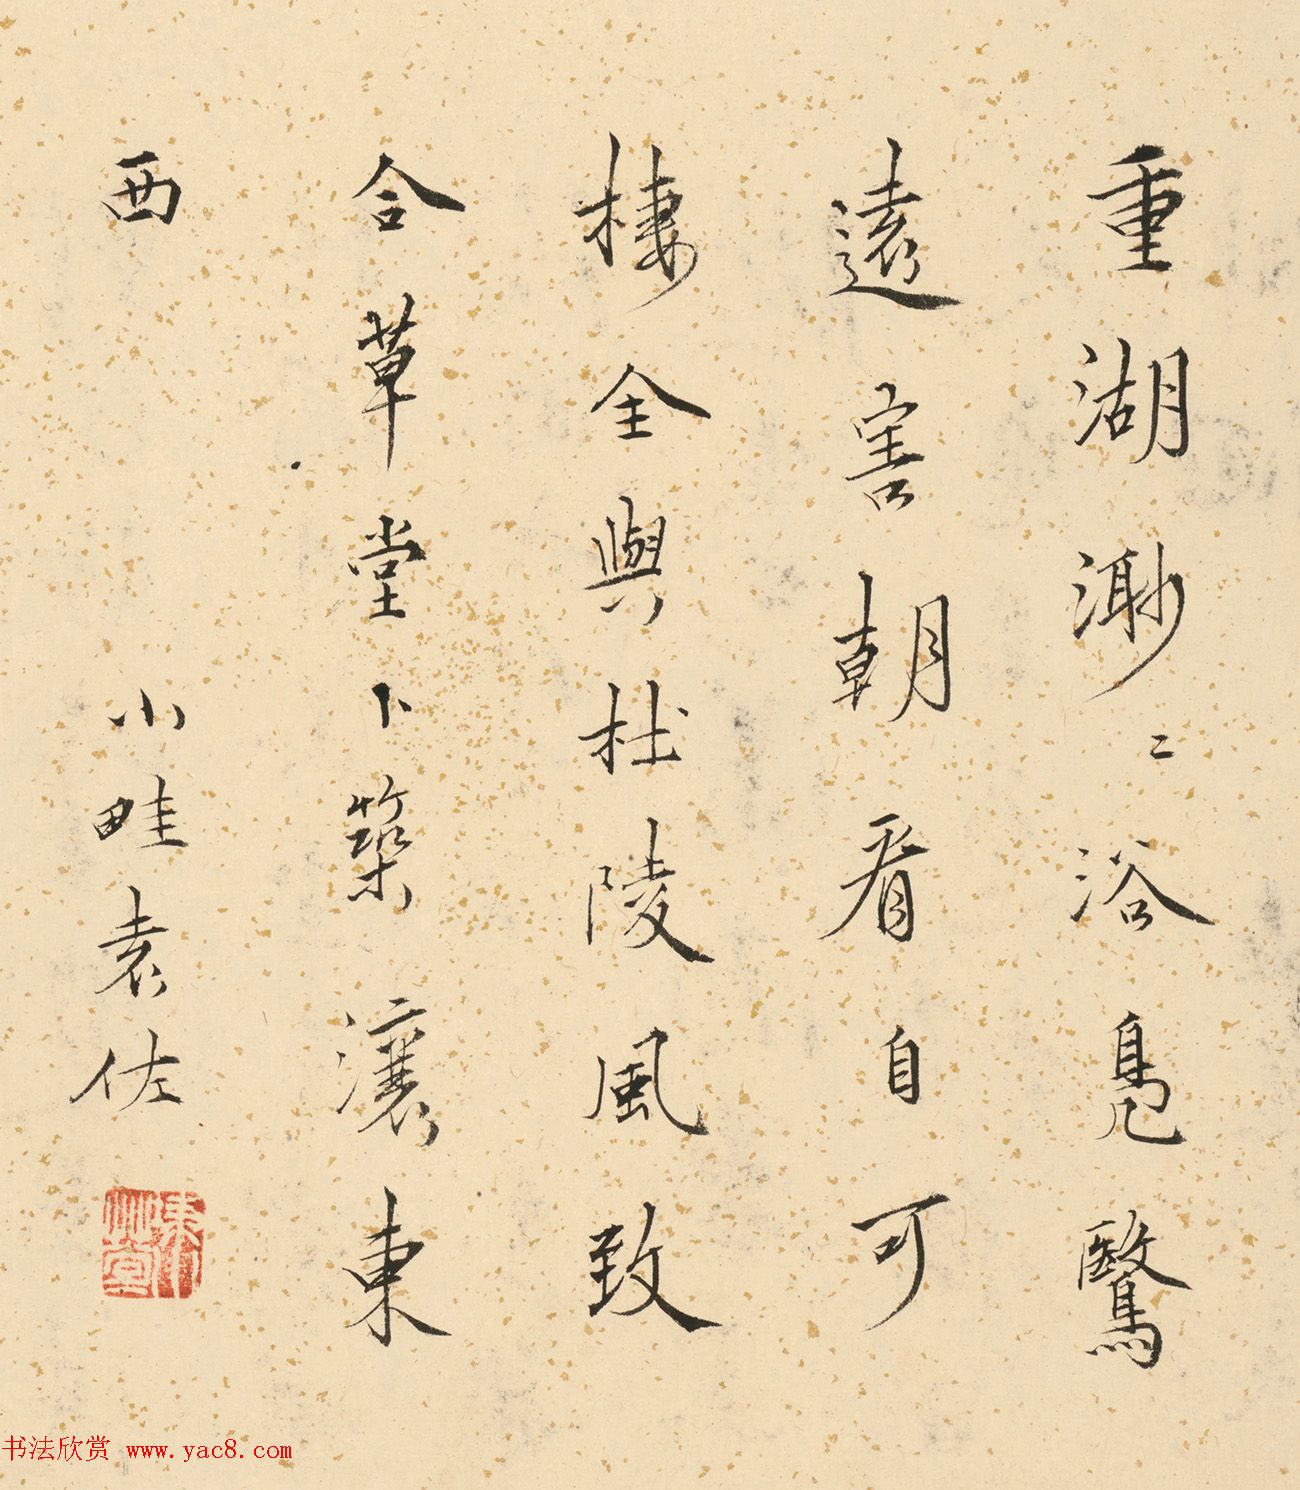 重湖渺〻浴鳧鷖
遠害朝看自可
棲全與杜陵風致
合草堂卜築瀼東
西 小畦袁佐
书法欣赏 www.yac8.com